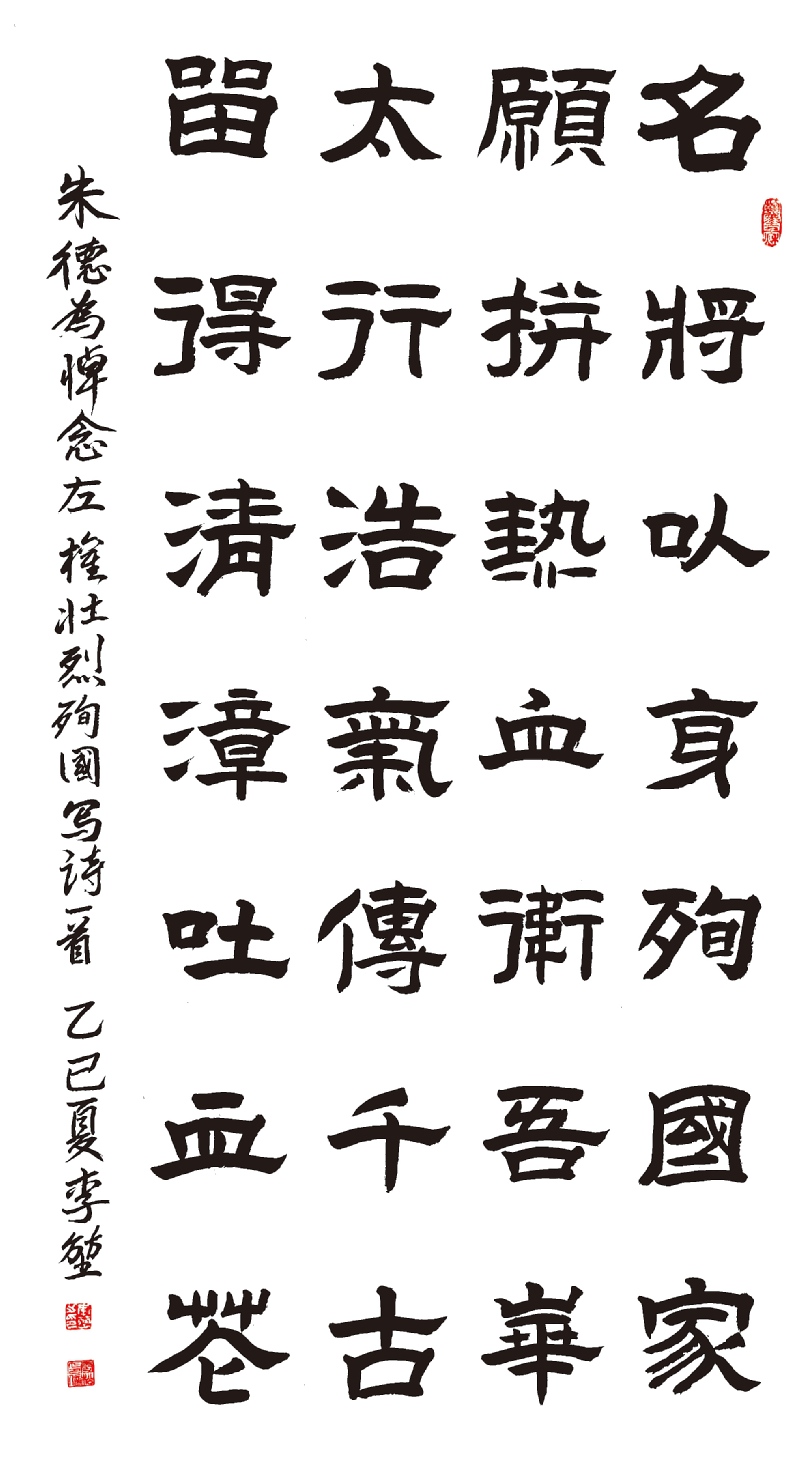 名將以身殉國家
願拼熱血衛吾華
太行浩氣傳千古
留得清漳吐血花
朱德為悼念左權壯烈殉國写詩一首 乙巳夏李堃